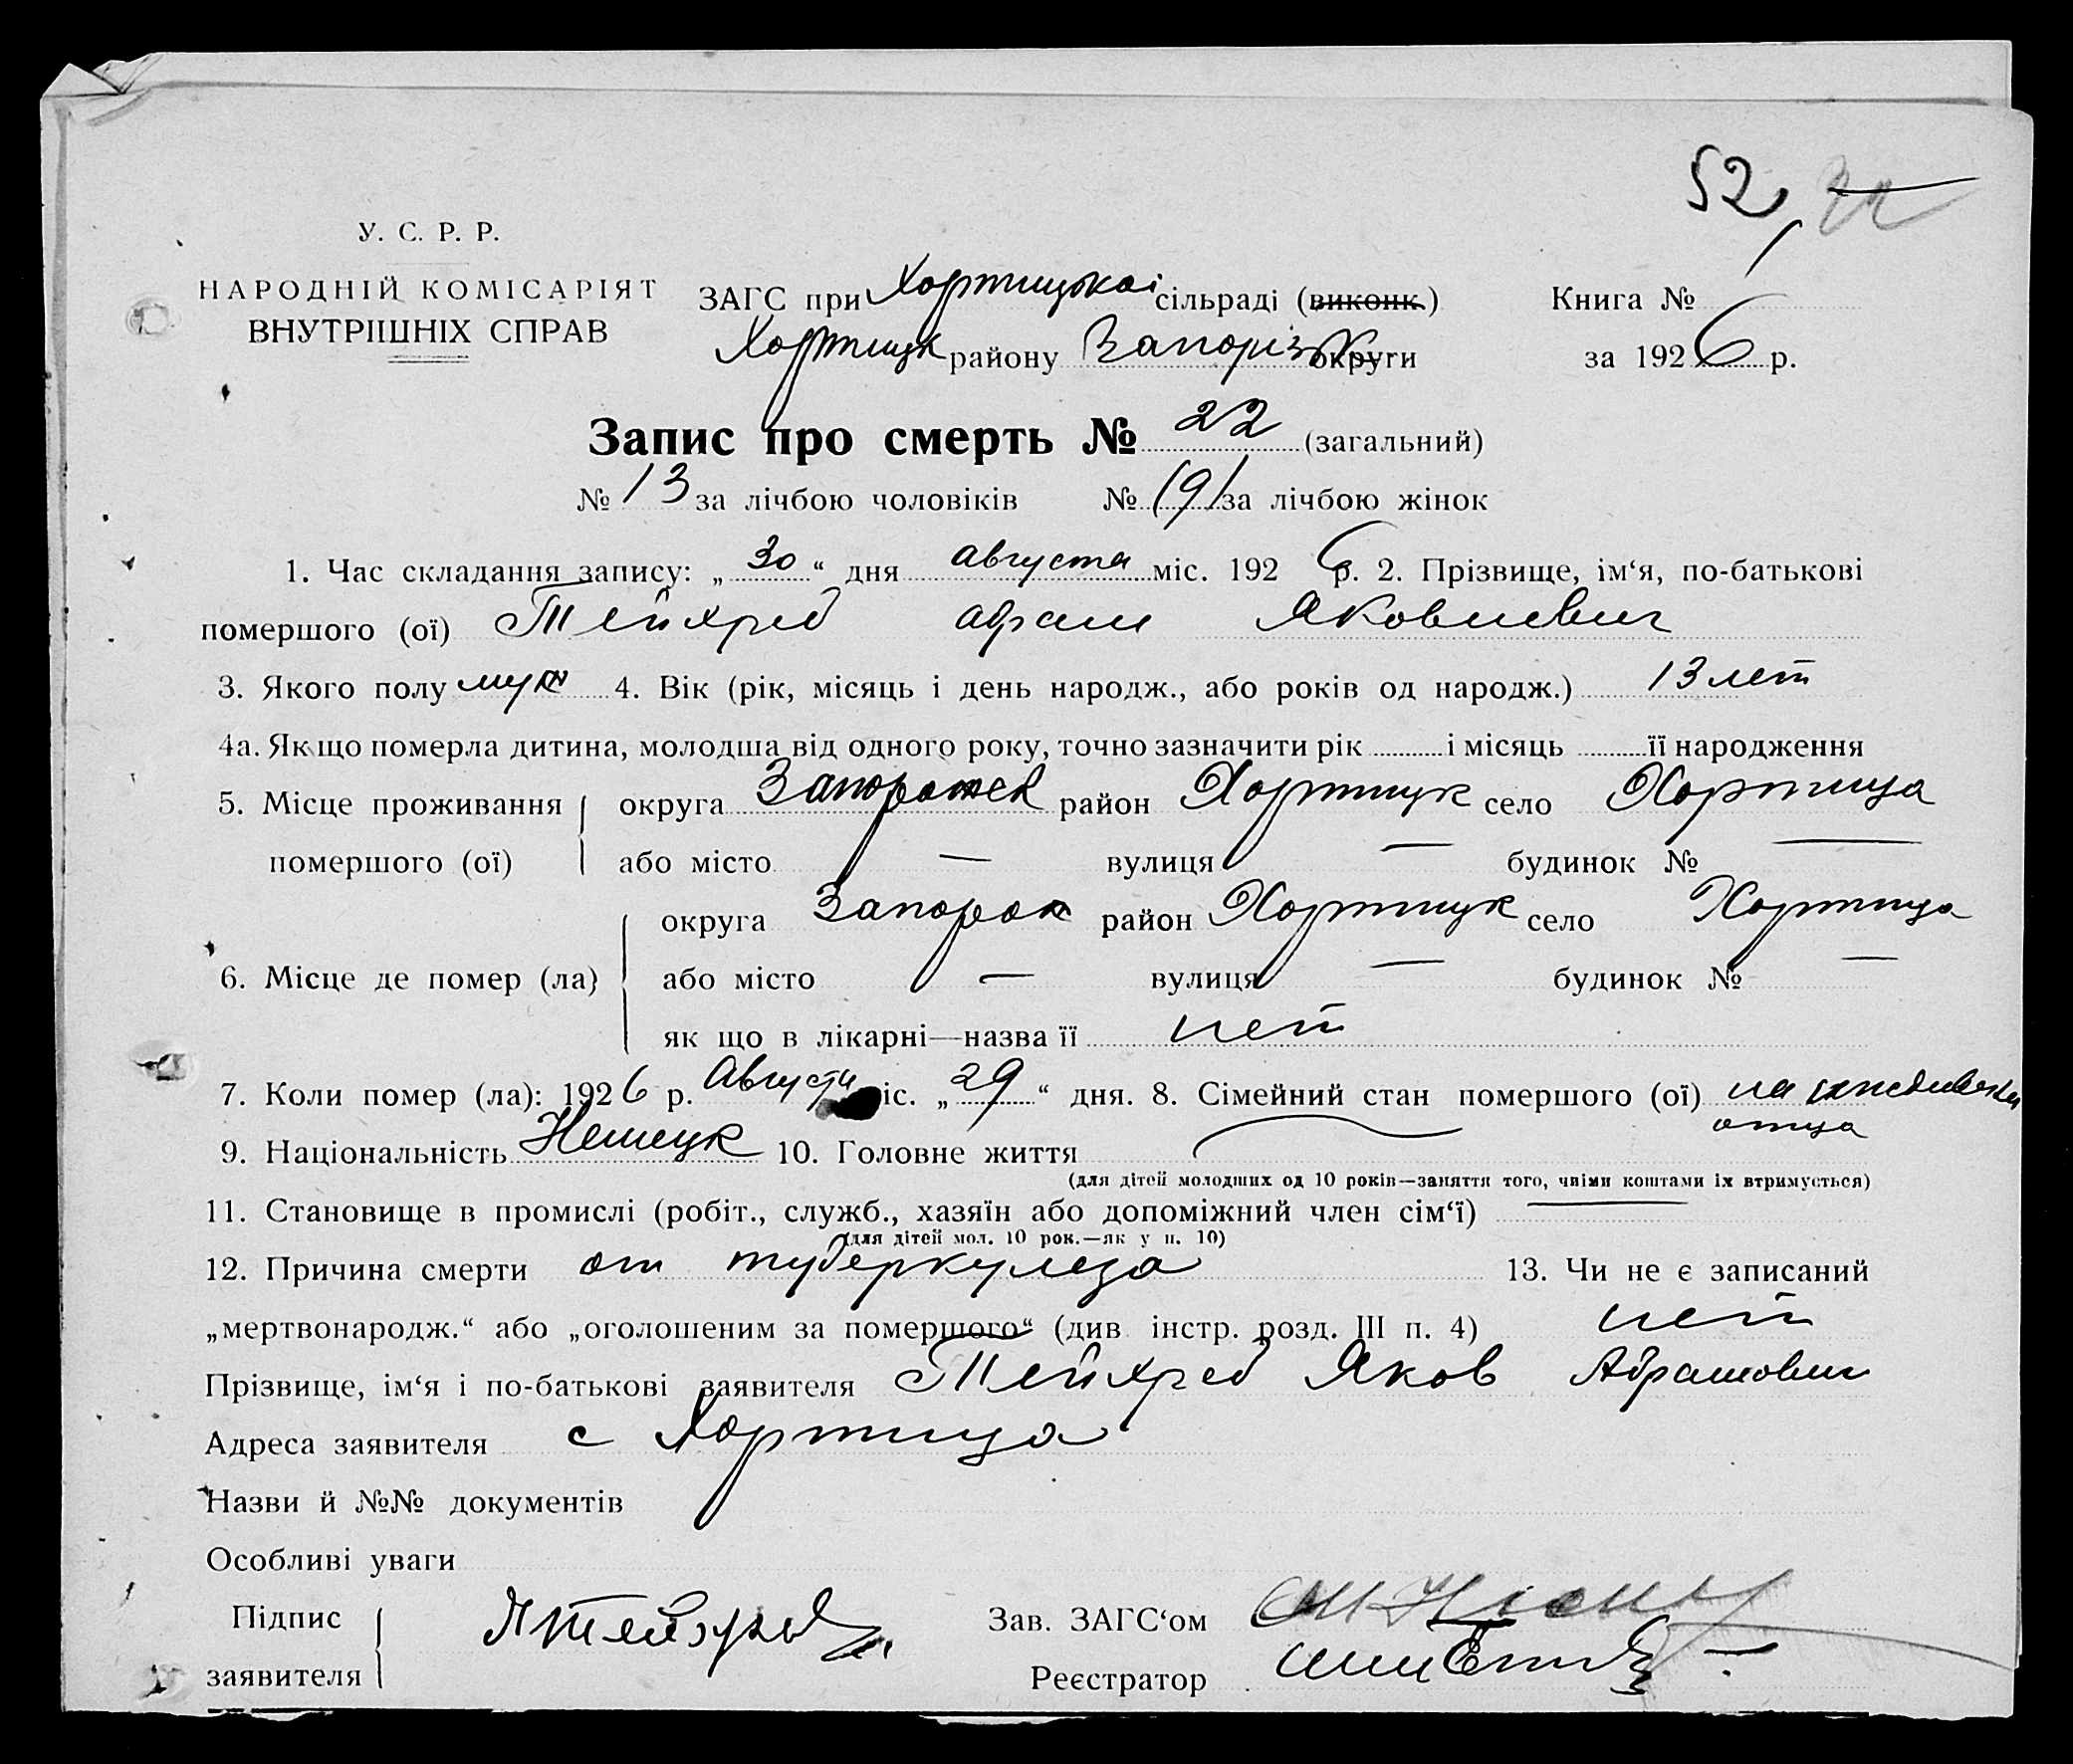 52
У. С. Р. Р.
НАРОДНІЙ КОМІСАРІЯТ
ВНУТРІШНІХ СПРАВ
ЗАГС при Хортицькоі сільраді (виконк.) Книга №
Хортицк району Запорізк округи за 1926 р.
Запис про смерть № 22 (загальний)
№ 13 за лічбою чоловіків № (9) за лічбою жінок
1. Час складання запису: „30“ дня августа міс. 1926 р. 2. Прізвище, ім‘я, по-батькові
помершого (ої) Тейхреб Абрам Яковлевич
3. Якого полу муж 4. Вік (рік, місяць і день народж., або років од народж.) 13 лет
4а. Якщо померла дитина, молодша від одного року, точно зазначити рік і місяць її народження
5. Місце проживання округа Запорожск район Хортицк село Хортица
помершого (ої) або місто — вулиця — будинок № —
округа Запорож район Хортицк село Хортица
6. Місце де помер (ла) або місто — вулиця — будинок № —
як що в лікарні—назва її нет
7. Коли помер (ла): 1926 р. Августа міс. „29“ дня. 8. Сімейний стан помершого (ої) на иждивении
отца
9. Національність Немецк 10. Головне життя
(для дітей молодших од 10 років—заняття того, чиїми коштами їх втримується)
11. Становище в промислі (робіт., служб., хазяїн або допоміжний член сім‘ї) —
(для дітей мол. 10 рок.—як у п. 10)
12. Причина смерти от туберкулеза 13. Чи не є записаний
„мертвонародж.“ або „оголошеним за помершого“ (див інстр. розд. III п. 4) нет
Прізвище, ім‘я і по-батькові заявителя Тейхреб Яков Абрамович
Адреса заявителя с Хортица
Назви й №№ документів
Особливі уваги
Підпис
заявителя Я Тейхреб
Зав. ЗАГС‘ом
Реєстратор